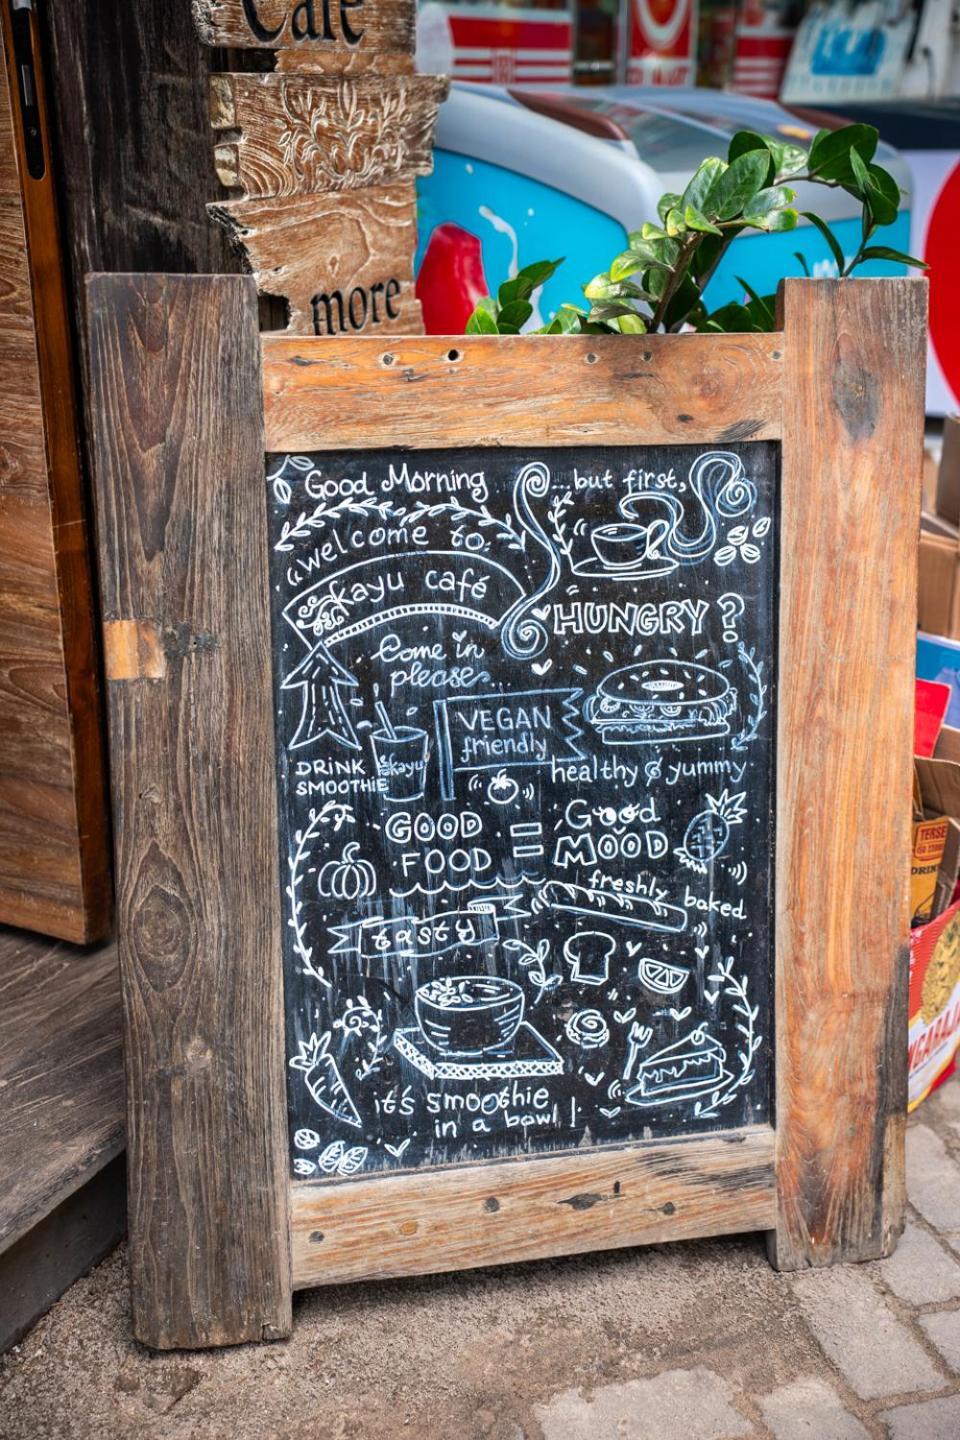 Café
more
Good Morning
...but first,
welcome to:
kayu café
HUNGRY?
Come in
please...
VEGAN
friendly
DRINK
SMOOTHIE
kayu
healthy & yummy
GOOD
FOOD
=
Good
MOOD
freshly
baked
tasty
it's smoothie
in a bowl!
TERSE
DRIN